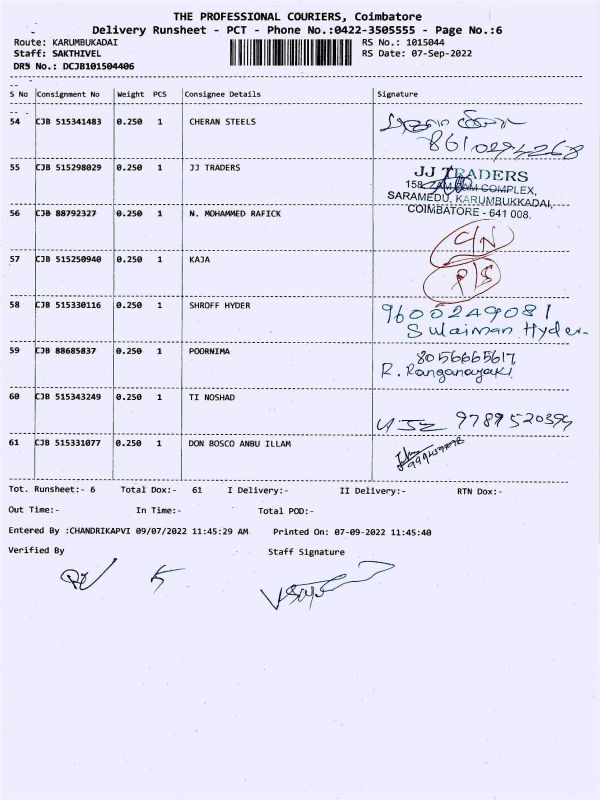 THE PROFESSIONAL COURIERS, Coimbatore
Delivery Runsheet - PCT - Phone No.:0422-3505555 - Page No.:6
Route: KARUMBUKADAI RS No.: 1015044
Staff: SAKTHIVEL RS Date: 07-Sep-2022
DRS No.: DCJB101504406
S No Consignment No Weight PCS Consignee Details Signature
54 CJB 515341483 0.250 1 CHERAN STEELS
8610294268
55 CJB 515298029 0.250 1 JJ TRADERS JJ TRADERS
158, ZAM ZAM COMPLEX,
SARAMEDU, KARUMBUKKADAI,
COIMBATORE - 641 008.
56 CJB 88792327 0.250 1 N. MOHAMMED RAFICK C/N
57 CJB 515250940 0.250 1 KAJA P/S
58 CJB 515330116 0.250 1 SHROFF HYDER 9600249081
Sulaiman Hyder
59 CJB 88685837 0.250 1 POORNIMA 8056665617
R. Ranganayaki
60 CJB 515343249 0.250 1 TI NOSHAD
61 CJB 515331077 0.250 1 DON BOSCO ANBU ILLAM
Tot. Runsheet:- 6 Total Dox:- 61 I Delivery:- II Delivery:- RTN Dox:-
Out Time:- In Time:- Total POD:-
Entered By :CHANDRIKAPVI 09/07/2022 11:45:29 AM Printed On: 07-09-2022 11:45:40
Verified By Staff Signature